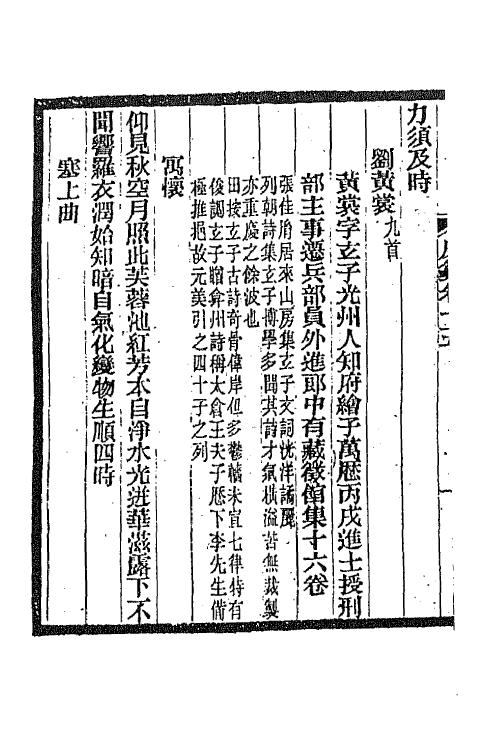 力須及時
劉黃裳九首
黃裳字玄子光州人知府繪子萬歷丙戌進士授刑
部主事遷兵部員外進郎中有藏徵館集十六卷
張佳胤居來山房集玄子文詞洸洋譎麗
列朝詩集玄子博學多聞其詩才氣橫溢苦無裁製
亦重慶之餘波也
田按玄子古詩奇骨偉岸但多鬱轖未宣七律特有
俊調玄子贈弇州詩稱太倉王夫子歷下李先生備
極推挹故元美引之四十子之列
寓懷
仰見秋空月照此芙蓉池紅芳本自淨水光迸華滋露下不
聞響羅衣潤始知暗自氣化變物生順四時
塞上曲